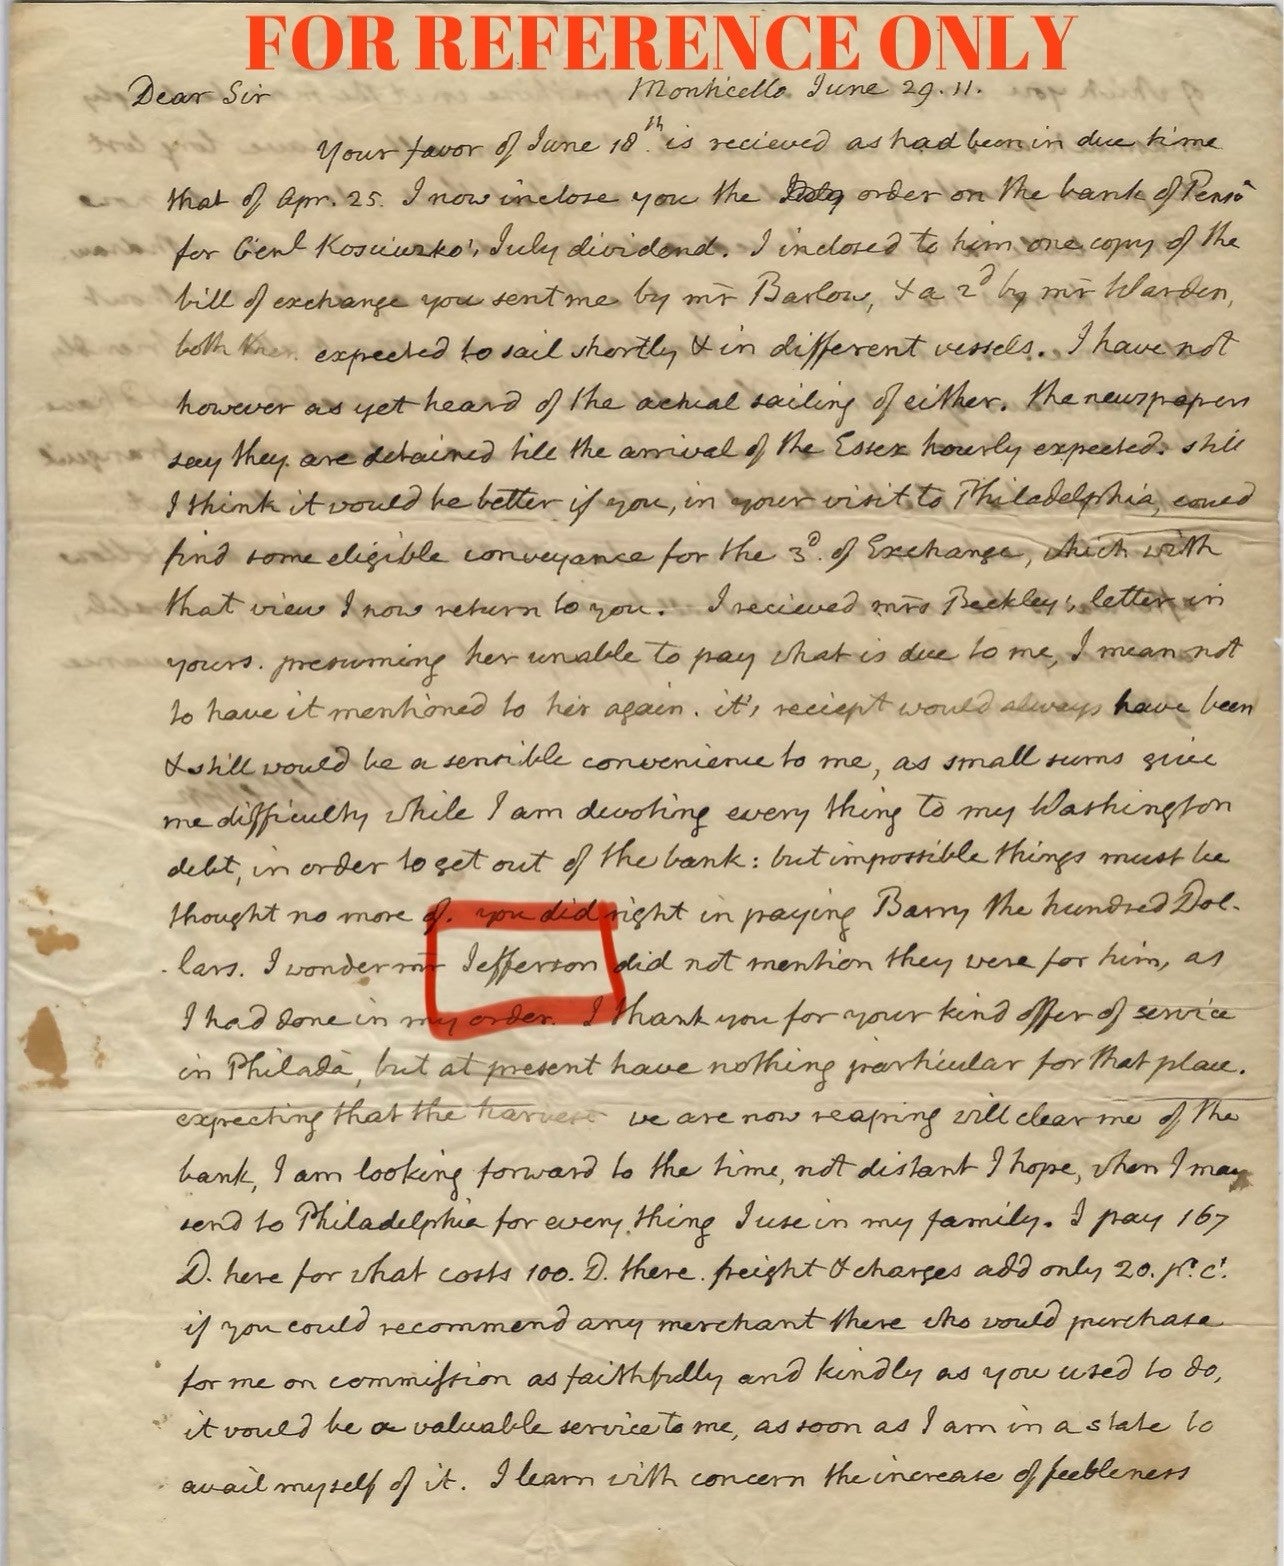 FOR REFERENCE ONLY
Dear Sir Monticello June 29. 11.
Your favor of June 18th. is recieved as had been in due time
that of Apr. 25. I now inclose you the order on the bank of Pensa
for Genl Kosciuzko's July dividend. I inclosed to him one copy of the
bill of exchange you sent me by mr Barlow, & a 2d by mr Warden,
both then expected to sail shortly & in different vessels. I have not
however as yet heard of the actual sailing of either. the newspapers
say they are detained till the arrival of the Essex hourly expected. still
I think it would be better if you, in your visit to Philadelphia, could
find some eligible conveyance for the 3d. of Exchange, which with
that view I now return to you. I recieved mrs Beckley's letter in
yours. presuming her unable to pay what is due to me, I mean not
to have it mentioned to her again. it's reciept would always have been
& still would be a sensible convenience to me, as small sums give
me difficulty while I am devoting every thing to my Washington
debt, in order to get out of the bank: but impossible things must be
thought no more of. you did right in paying Barry the hundred Dol-
lars. I wonder mr Jefferson did not mention they were for him, as
I had done in my order. I thank you for your kind offer of service
in Philada, but at present have nothing particular for that place.
expecting that the harvest we are now reaping will clear me of the
bank, I am looking forward to the time, not distant I hope, when I may
send to Philadelphia for every thing I use in my family. I pay 167
D. here for what costs 100. D. there. freight & charges add only 20. pr. ct.
if you could recommend any merchant there who would purchase
for me on commission as faithfully and kindly as you used to do,
it would be a valuable service to me, as soon as I am in a state to
avail myself of it. I learn with concern the increase of feebleness